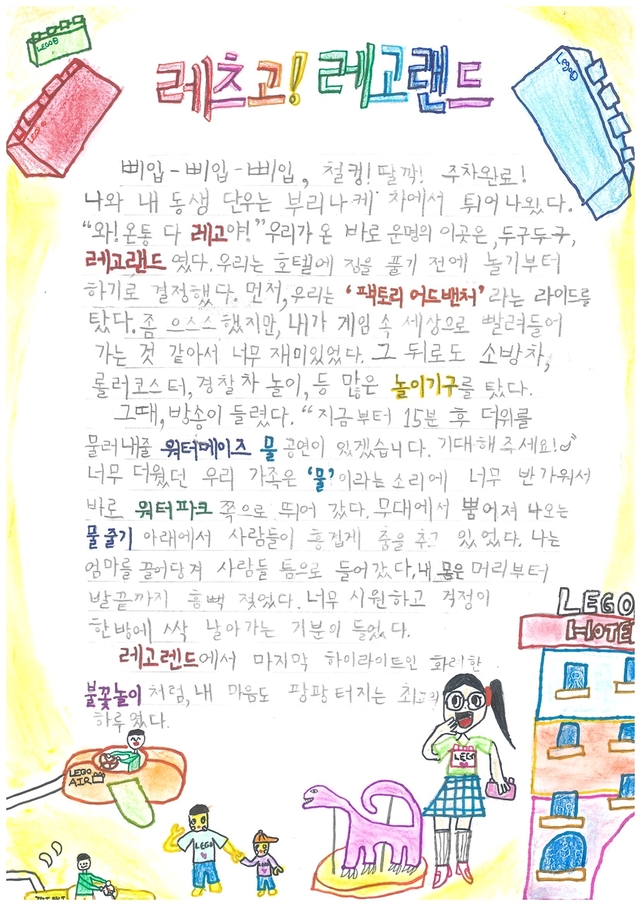 LEGO®
LEGO
LEGO
레츠고! 레고랜드
삐입-삐입-삐입, 철컹! 딸깍! 주차완료!
나와 내 동생 단우는 부리나케 차에서 튀어나왔다.
"와! 온통 다 레고야!" 우리가 온 바로 운명의 이곳은, 두구두구,
레고랜드였다. 우리는 호텔에 짐을 풀기 전에 놀기부터
하기로 결정했다. 먼저, 우리는 '팩토리 어드밴처' 라는 라이드를
탔다. 좀 으스스 했지만, 내가 게임 속 세상으로 빨려들어
가는 것 같아서 너무 재미있었다. 그 뒤로도 소방차,
롤러코스터, 경찰차 놀이, 등 많은 놀이기구를 탔다.
그때, 방송이 들렸다. "지금부터 15분 후 더위를
물러내줄 워터메이즈 물 공연이 있겠습니다. 기대해주세요!
너무 더웠던 우리 가족은 '물'이라는 소리에 너무 반가워서
바로 워터파크 쪽으로 뛰어 갔다. 무대에서 뿜어져 나오는
물줄기 아래에서 사람들이 흥겹게 춤을 추고 있었다. 나는
엄마를 끌어당겨 사람들 틈으로 들어갔다. 내 몸은 머리부터
발끝까지 흠뻑 젖었다. 너무 시원하고 걱정이
한방에 싹 날아가는 기분이 들었다.
레고렌드에서 마지막 하이라이트인 화려한
불꽃놀이처럼, 내 마음도 팡팡 터지는 최고의
하루였다.
LEGO
HOTEL
LEGO
AIR
LEGO
LEGO
LEGO